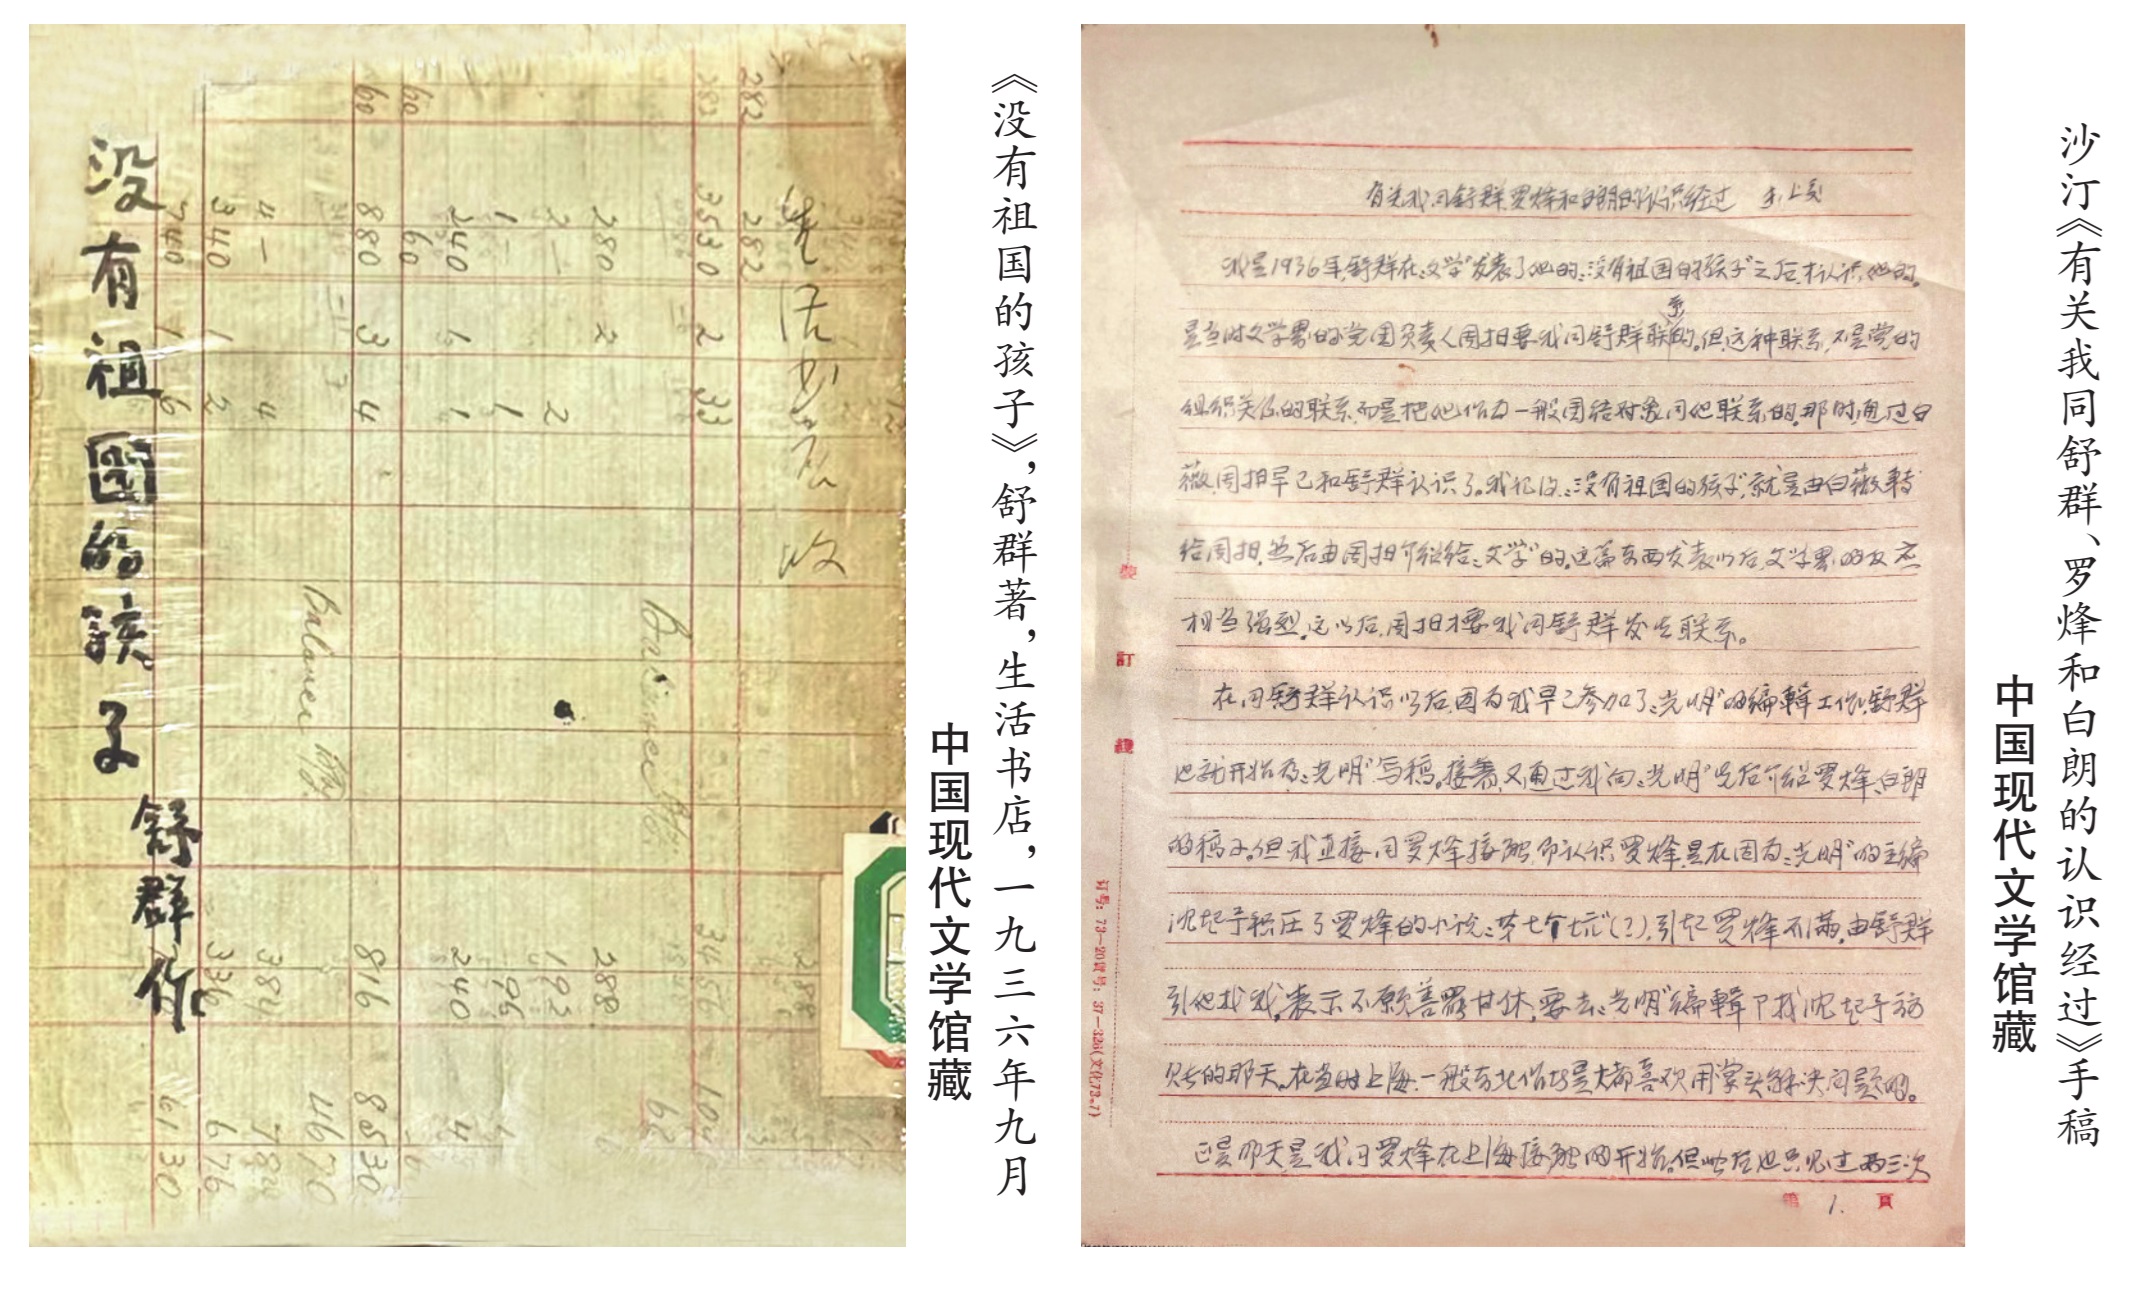 没有祖國的孩子
舒群作
282
60
60
282
282
3530
2
33
280
2
2
1
1
240
1
1
60
880
3
4
4
4
340
1
2
740
1
6
816
288
192
96
240
384
336
3456
288
104
62
4
8530
4670
784
676
6130
Balance
Balance
《没有祖国的孩子》，舒群著，生活书店，一九三六年九月
中国现代文学馆藏
有关我同舒群、罗烽和白朗的认识经过
我是1936年，舒群在“文学”发表了他的“没有祖国的孩子”之后，才认识他的。
是当时文学界的党团负责人周扬要我同舒群联系的。但这种联系，不是党的
组织关系的联系，而是把他作为一般团结对象同他联系的。那时，通过白
薇，周扬早已和舒群认识了。我记得“没有祖国的孩子”，就是由白薇转
给周扬，然后由周扬介绍给“文学”的。这篇东西发表以后，文学界的反应
相当强烈。这以后，周扬才要我同舒群发生联系。
在同舒群认识以后，因为我早已参加了“光明”的编辑工作，舒群
也就开始为“光明”写稿。接着，又通过我向“光明”先后介绍罗烽、白朗
的稿子。但我直接同罗烽接触，即认识罗烽，是在因为“光明”的主编
沈起予积压了罗烽的小说“第七个坑”（？），引起罗烽不满，由舒群
引他找我，表示不愿善罢甘休，要去“光明”编辑部找沈起予
的那天。在当时上海，一般东北作家是大都喜欢用拳头解决问题的。
正是那天是我同罗烽在上海接触的开始。但此后也只见过两三次
装
訂
綫
第 1. 頁
沙汀《有关我同舒群、罗烽和白朗的认识经过》手稿
中国现代文学馆藏